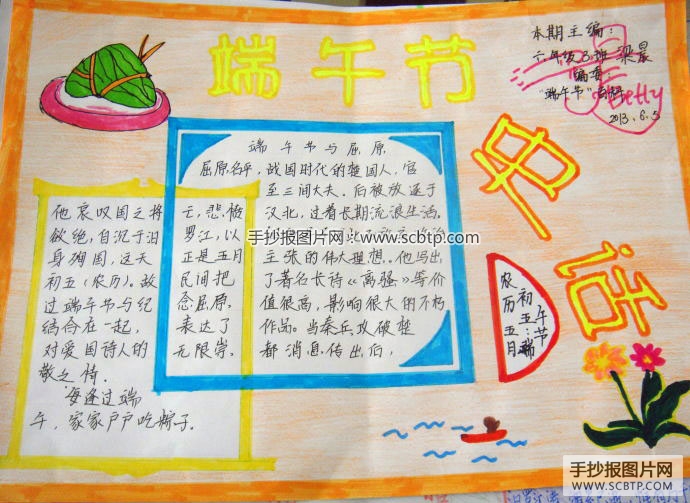 端午节
史话
本期主编:
六年级3班 梁晨
编委:
"端午节"百科 Betty
2013.6.5
端午节与屈原
屈原名平,战国时代的楚国人,官
至三闾大夫。后被放逐于
汉北,过着长期流浪生活。
主张的伟大理想。他写出
了着名长诗《离骚》等价
值很高,影响很大的不朽
作品。当秦兵攻破楚
都消息传出后,
他哀叹国之将亡,悲愤
欲绝,自沉于汨罗江,以
身殉国,这天正是五月
初五(农历)。故民间把
过端午节与纪念屈原.
结合在一起,表达了
对爱国诗人的无限崇.
敬之情.
每逢过端
午,家家户户吃粽子.
农历五月
初五:端
午节
手抄报图片网——www.scbtp.com
手抄报图片网
SCBTP.COM